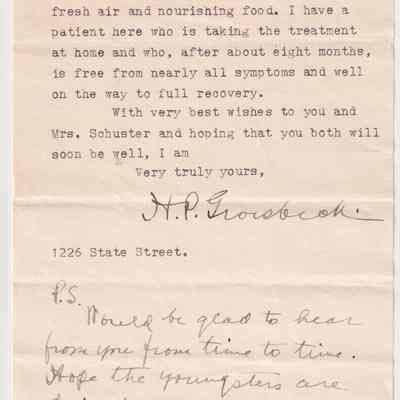 fresh air and nourishing food. I have a
patient here who is taking the treatment
at home and who, after about eight months,
is free from nearly all symptoms and well
on the way to full recovery.
With very best wishes to you and
Mrs. Schuster and hoping that you both will
soon be well, I am
Very truly yours,
H. P. Groesbeck.
1226 State Street.
P.S.
Would be glad to hear
from you from time to time.
Hope the youngsters are